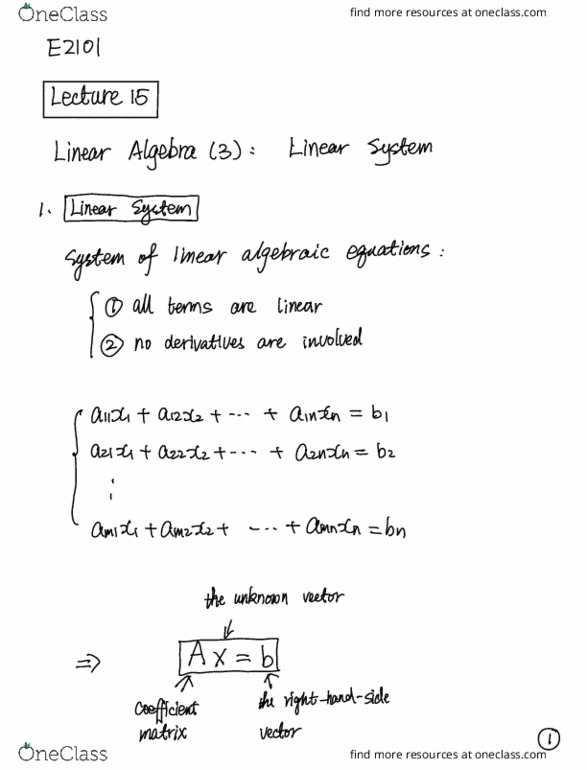 OneClass find more resources at oneclass.com
E2101
Lecture 15
Linear Algebra (3): Linear System
1. Linear System
System of linear algebraic equations:
① all terms are linear
② no derivatives are involved
a11x1 + a12x2 + ··· + a1nxn = b1
a21x1 + a22x2 + ··· + a2nxn = b2
⋮
am1x1 + am2x2 + ··· + amnxn = bn
the unknown vector
⇒ Ax = b
coefficient the right-hand-side
matrix vector
①
OneClass find more resources at oneclass.com